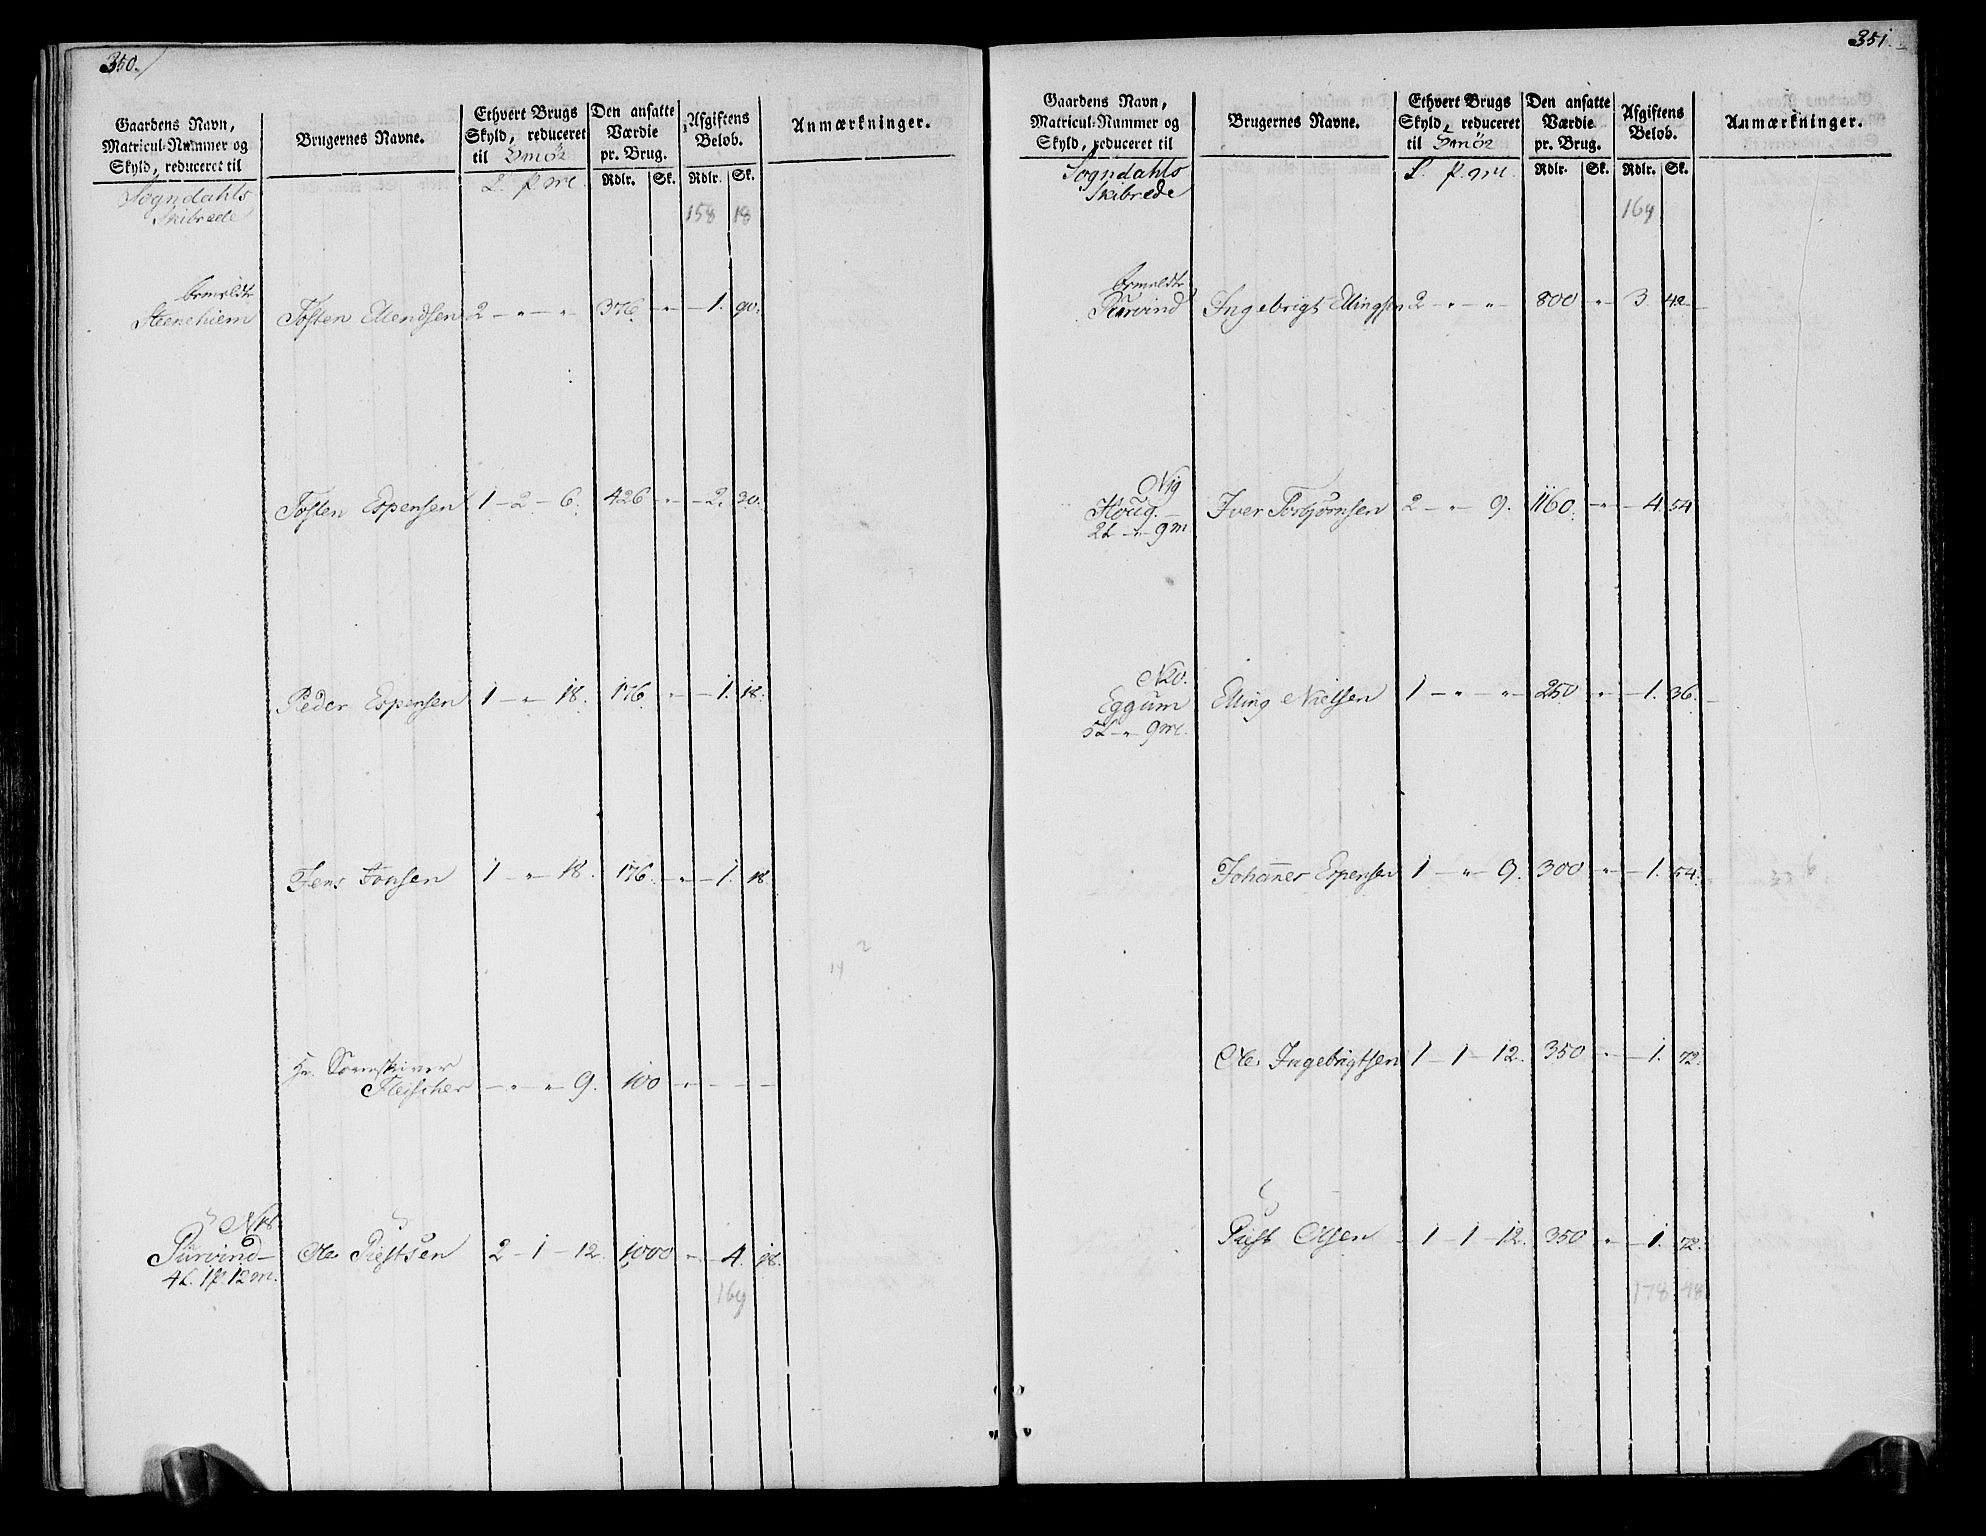 350.
Gaardens Navn,
Matricul-Nummer og
Skyld, reduceret til
Brugernes Navne.
Ethvert Brugs
Skyld, reduceret
til Smör
Den ansatte
Værdie
pr. Brug.
Afgiftens
Beløb.
Anmærkninger.
L. p. mr.
Rdlr. Sk. Rdlr. Sk.
Sogndahls
Skibrede
158 18
bemeldte
Steenehiem Tosten Ellendsen 2 - " - " 376 " 1. 90.
Tosten Espensen 1 - 2 - 6. 426 " 2. 30.
Peder Espensen 1 - " - 18. 176. " 1. 18.
Jens Jonsen 1 - " - 18. 176. " 1. 18.
14 2
Hr. Sorenskriver
Fleischer - " - " - 9. 100 " - -
N 18
Pürvind Ole Piestsen 2 - 1 - 12. 1000 " 4. 18.
4L. 1p 12m.
164
351.
Gaardens Navn,
Matricul-Nummer og
Skyld, reduceret til
Brugernes Navne.
Ethvert Brugs
Skyld, reduceret
til Smör
Den ansatte
Værdie
pr. Brug.
Afgiftens
Beløb.
Anmærkninger.
L. p. mr.
Rdlr. Sk. Rdlr. Sk.
Sogndahls
Skibrede
164
bemeldte
Pürvind Ingebrigt Ellingsen 2 - " - " 800 " 3. 42
N 19
Houg Iver Torbjørnsen 2 - " 9. 1160. " 4. 54
2L - " - 9m
N 20.
Eggum Elling Nielsen 1 - " - " 250 " 1. 36.
5L - " - 9mr.
Johannes Espensen 1 - " 9. 300 " 1. 54.
Ole Ingebrigtsen 1 - 1 - 12. 350 " 1. 72.
Piest Olsen 1 - 1 - 12. 350 " 1. 72.
178 48